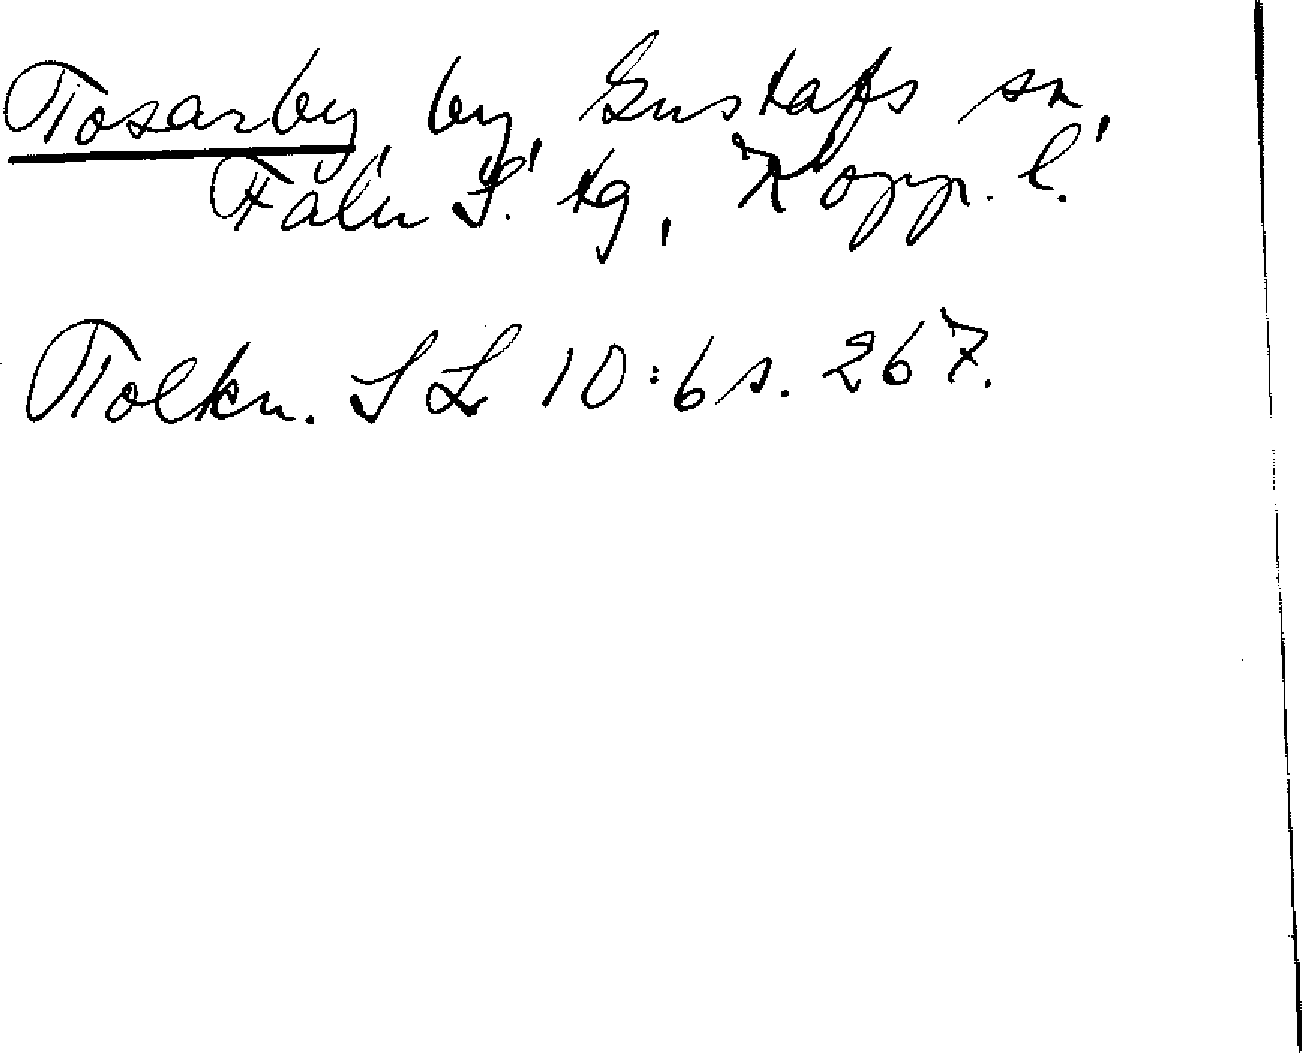 Tosarby by, Gustafs sn,
Falu S. tg, Kopp. l.
Tolkn. SL 10:6 s. 267.